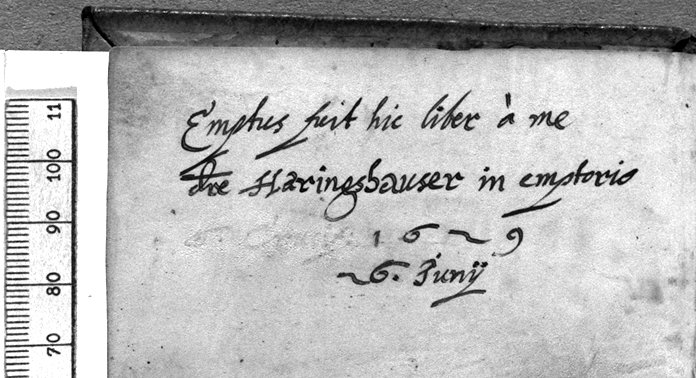 Emptus fuit hic liber à me
dre Haringshauser in emptorio
1629
26. Junij
11
100
90
80
70